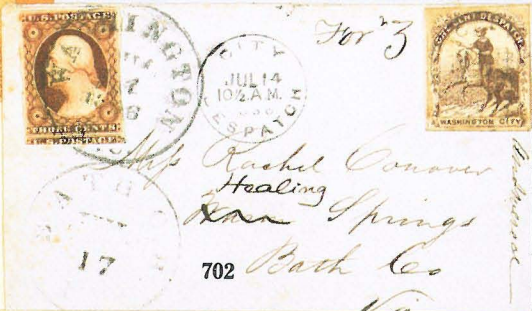 U.S. POSTAGE
THREE CENTS
WASHINGTON
CITY
JUL 14
10½ A.M.
DESPATCH
For 3
DESPATCH
WASHINGTON CITY
Miss Rachel Conover
Healing
Springs
17
702
Bath Co
Va